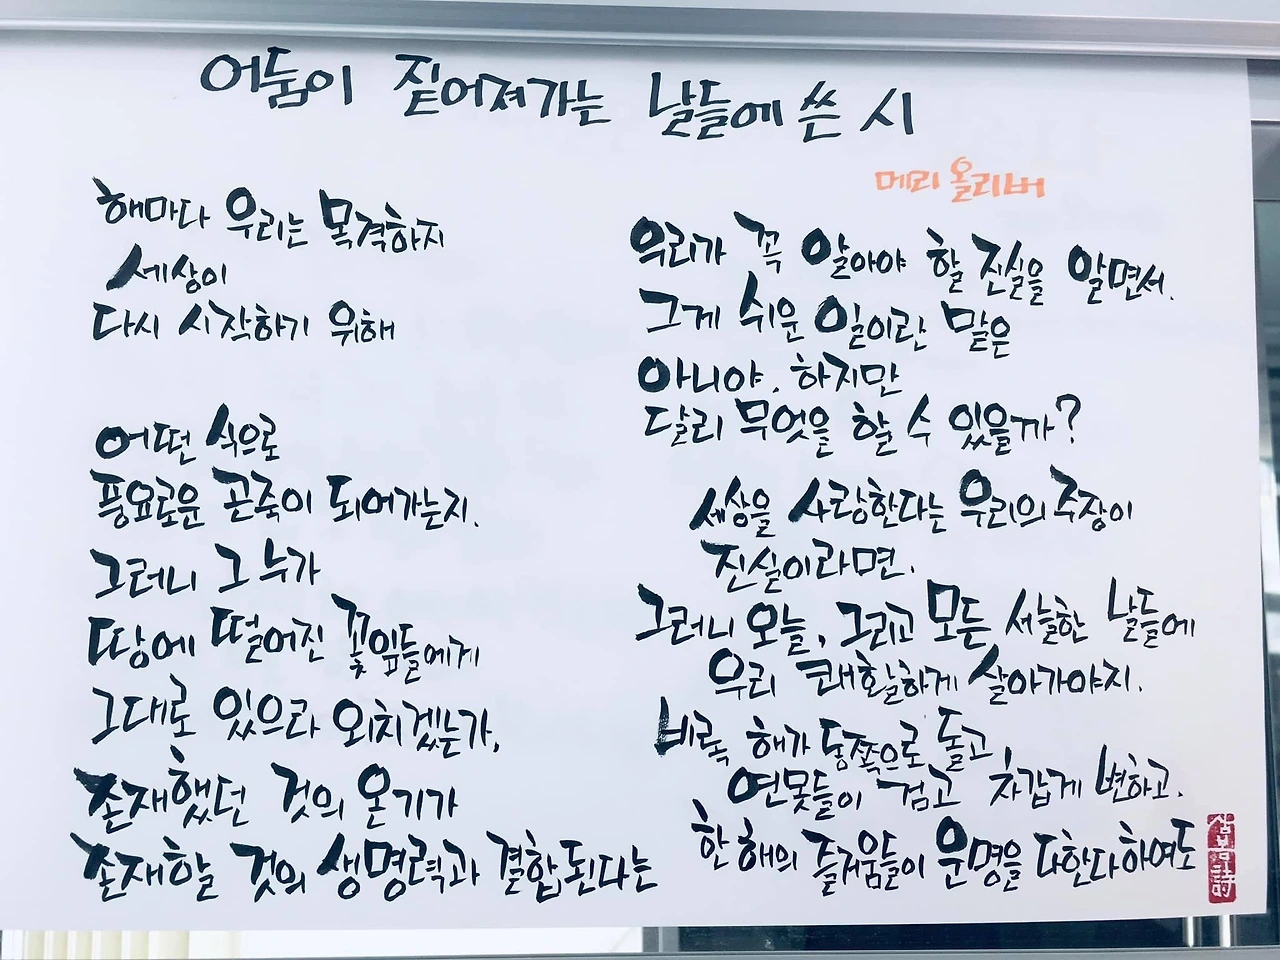 어둠이 짙어져가는 날들에 쓴 시
메리 올리버
해마다 우리는 목격하지
세상이
다시 시작하기 위해
어떤 식으로
풍요로운 곤죽이 되어가는지.
그러니 그 누가
땅에 떨어진 꽃잎들에게
그대로 있으라 외치겠는가,
존재했던 것의 온기가
존재할 것의 생명력과 결합된다는
우리가 꼭 알아야 할 진실을 알면서.
그게 쉬운 일이란 말은
아니야. 하지만
달리 무엇을 할 수 있을까?
세상을 사랑한다는 우리의 주장이
진실이라면.
그러니 오늘, 그리고 모든 서늘한 날들에
우리 쾌활하게 살아가야지.
비록 해가 동쪽으로 돌고,
연못들이 검고 차갑게 변하고.
한 해의 즐거움들이 운명을 다한다하여도